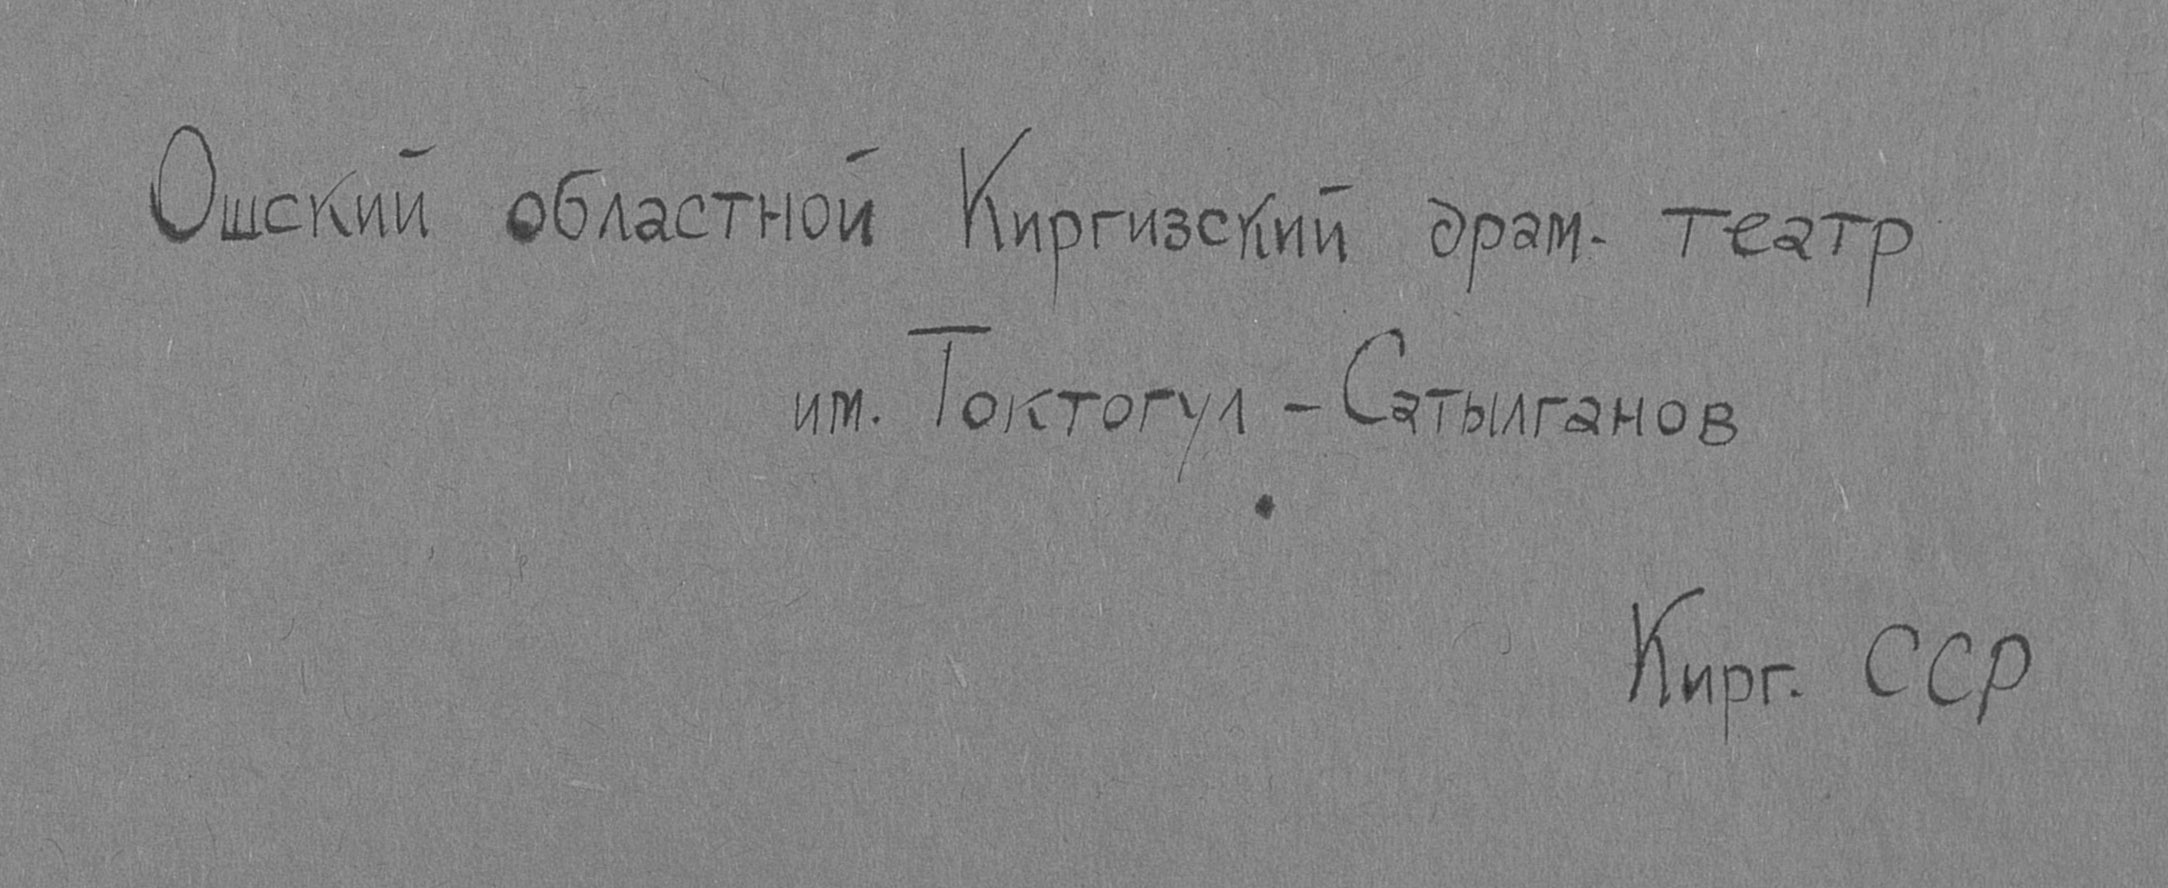 Ошский областной Киргизский драм. театр
им. Токтогул - Сатылганов
Кирг. ССР